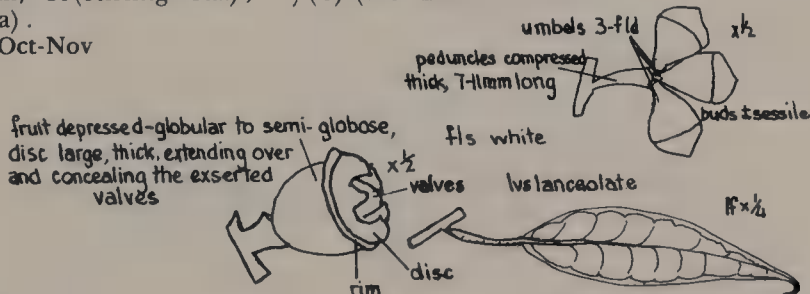 a) .
Oct-Nov
umbels 3-fld
x½
peduncles compressed
thick, 7-11mm long
buds ± sessile
fruit depressed-globular to semi-globose,
disc large, thick, extending over
and concealing the exserted
valves
fls white
x½
valves
lvs lanceolate
lf x¼
disc
rim